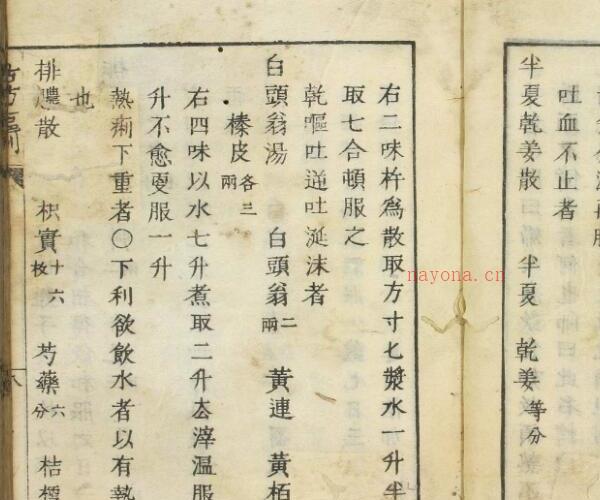 吐血不止者
半夏乾姜散 半夏 乾姜 等分
右二味杵爲散取方寸匕漿水一升半
取七合頓服之
乾嘔吐逆吐涎沫者
白頭翁湯 白頭翁 二兩 黃連 黃栢
榛皮 各三兩
右四味以水七升煮取二升厺滓溫服
升不愈更服一升
熱痢下重者〇下利欲飲水者以有熱
也
排膿散 枳實 十六枚 芍藥 六分 桔梗
nayona.cn